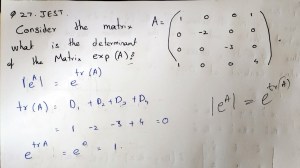 Q 27. JEST.
Consider the matrix A = ( 1 0 0 1
0 -2 0 0
0 0 -3 0
1 0 0 4 )
what is the determinant
of the Matrix exp (A)?
|e^A| = e^tr(A)
tr(A) = D₁ + D₂ + D₃ + D₄
= 1 -2 -3 +4 = 0
e^trA = e^0 = 1.
|e^A| = e^tr(A)